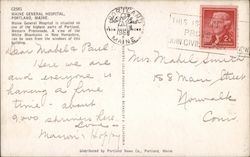 G2585
MAINE GENERAL HOSPITAL,
PORTLAND, MAINE.
Maine General Hospital is situated on
one of the highest parts of Portland,
Western Promenade. A view of the
White Mountains in New Hampshire,
can be seen from the windows of this
building.
PORTLAND
MAINE
THIS IS
JOIN CIVIL
Dear Mabel & Paul:
Here we are
and everyone is
having a fine
time - about
9000 shriners here
Love
Marion & Hoppy
Mrs. Mabel Smith
158 Main Street
Norwalk
Conn
Distributed by Portland News Co., Portland, Maine